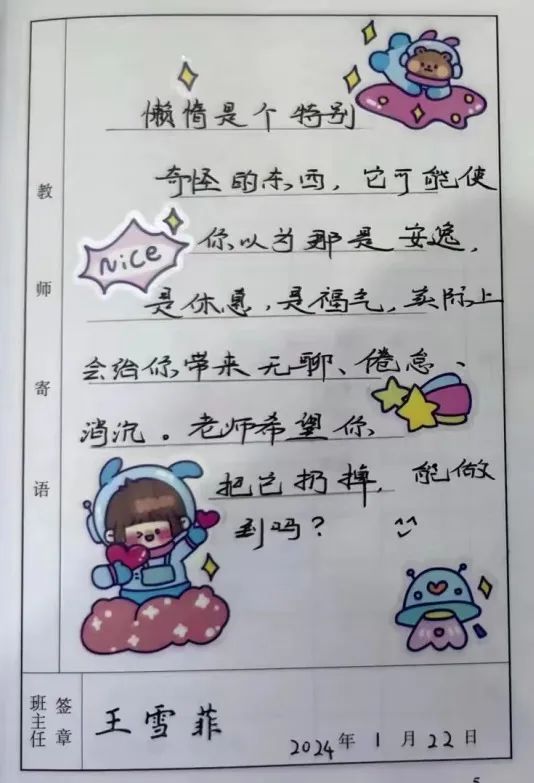 懒惰是个特别
奇怪的东西，它可能使
Nice
你以为那是安逸，
是休息，是福气，实际上
会给你带来无聊、倦怠、
消沉。老师希望你
把它扔掉，能做
到吗？ ^^
教师寄语
班主任签章
王雪菲
2024年1月22日
5